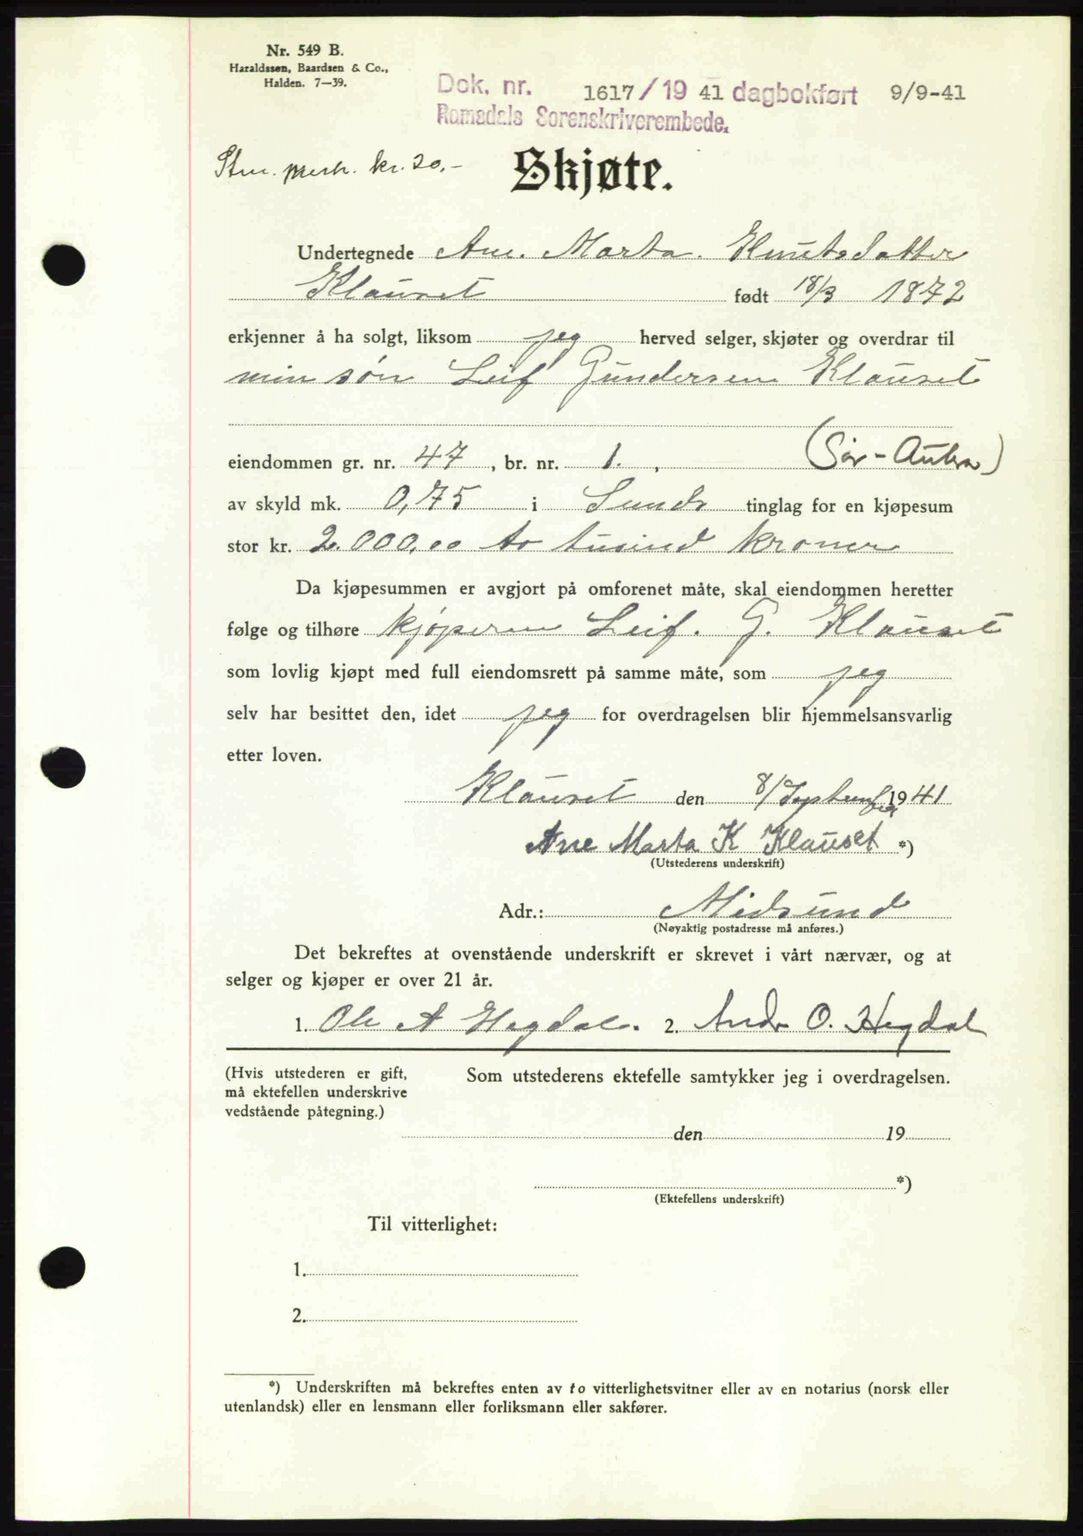 Nr. 549 B.
Haraldssen, Baardsen & Co.,
Halden. 7—39.
Dok. nr. 1617/19 41 dagbokført 9/9-41
Romsdals Sorenskriverembede.
Stm. merk. kr. 20.-
Skjøte.
Undertegnede Ane. Marta. Knutsdatter
Klauset født 18/3 1872
erkjenner å ha solgt, liksom jeg herved selger, skjøter og overdrar til
min søn Leif Gundersen Klauset
eiendommen gr. nr. 47, br. nr. 1. , (Sør-
av skyld mk. 0,75 i Sunds tinglag for en kjøpesum
stor kr. 2.000,00 to tusind kroner
Da kjøpesummen er avgjort på omforenet måte, skal eiendommen heretter
følge og tilhøre kjøperen Leif. G. Klauset
som lovlig kjøpt med full eiendomsrett på samme måte, som jeg
selv har besittet den, idet jeg for overdragelsen blir hjemmelsansvarlig
etter loven.
Klauset den 8/September 1941
Ane Marta K Klauset *)
(Utstederens underskrift)
Adr.: Midsund
(Nøyaktig postadresse må anføres.)
Det bekreftes at ovenstående underskrift er skrevet i vårt nærvær, og at
selger og kjøper er over 21 år.
1. Ole A Hegdal. 2. Andr O. Hegdal
(Hvis utstederen er gift, Som utstederens ektefelle samtykker jeg i overdragelsen.
må ektefellen underskrive
vedstående påtegning.)
den 19
*)
(Ektefellens underskrift)
Til vitterlighet:
1.
2.
*) Underskriften må bekreftes enten av to vitterlighetsvitner eller av en notarius (norsk eller
utenlandsk) eller en lensmann eller forliksmann eller sakfører.